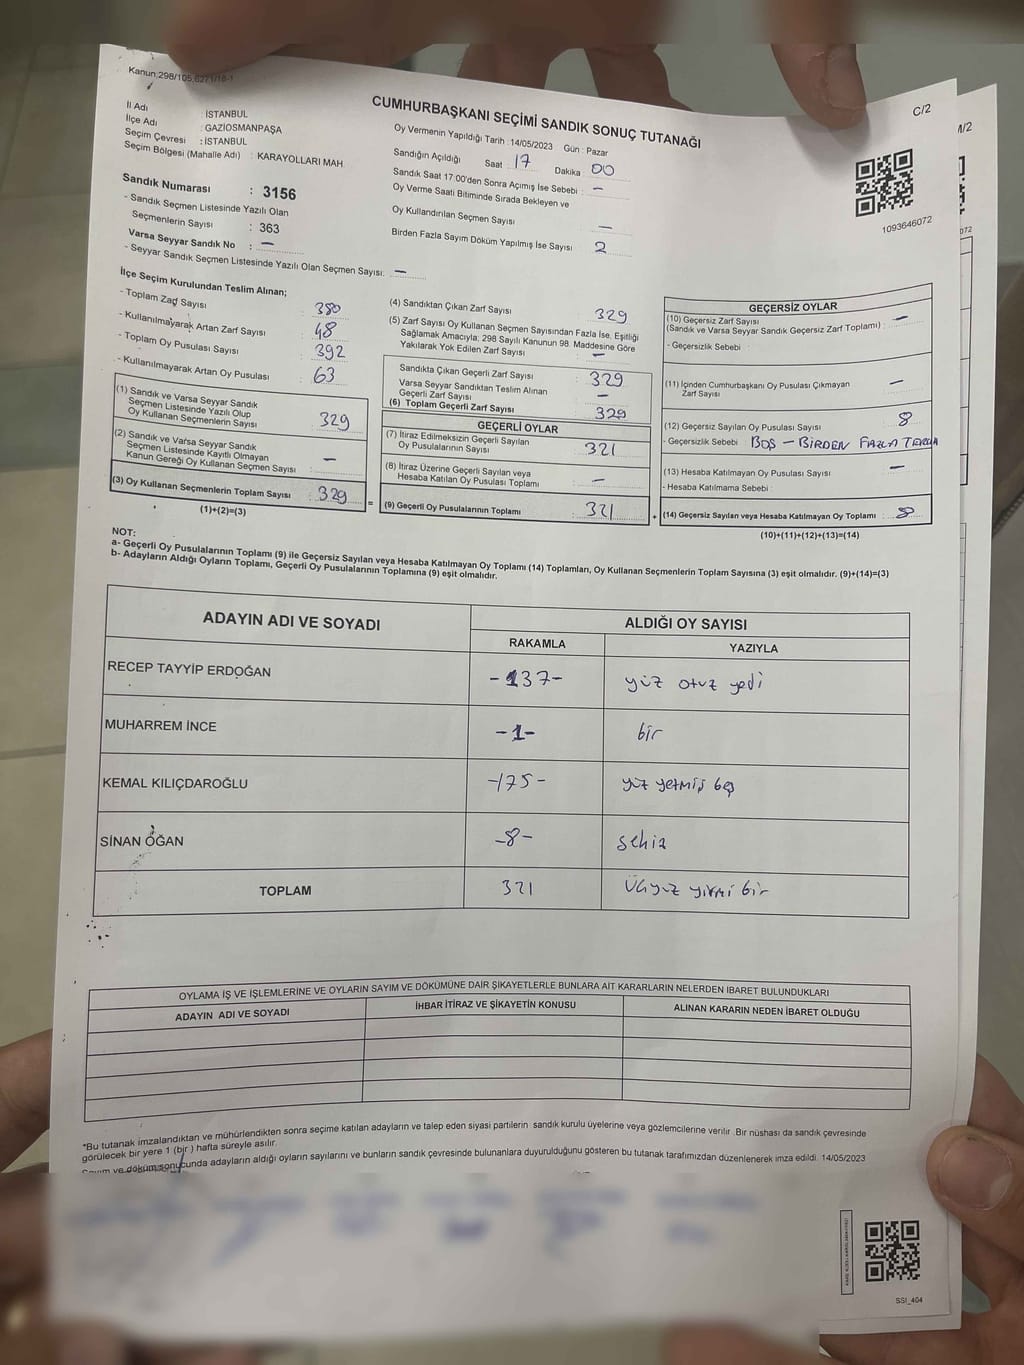 Kanun:298/105,6271/18-1
C/2
CUMHURBAŞKANI SEÇİMİ SANDIK SONUÇ TUTANAĞI
İl Adı : İSTANBUL
İlçe Adı : GAZİOSMANPAŞA
Seçim Çevresi : İSTANBUL
Seçim Bölgesi (Mahalle Adı) : KARAYOLLARI MAH.
Oy Vermenin Yapıldığı Tarih : 14/05/2023 Gün : Pazar
Sandığın Açıldığı Saat 17 Dakika 00
Sandık Saat 17:00'den Sonra Açımış İse Sebebi : –
Oy Verme Saati Bitiminde Sırada Bekleyen ve
Oy Kullandırılan Seçmen Sayısı –
Birden Fazla Sayım Döküm Yapılmış İse Sayısı 2
1093646072
M/2
072
Sandık Numarası : 3156
- Sandık Seçmen Listesinde Yazılı Olan
Seçmenlerin Sayısı : 363
Varsa Seyyar Sandık No : –
- Seyyar Sandık Seçmen Listesinde Yazılı Olan Seçmen Sayısı: –
İlçe Seçim Kurulundan Teslim Alınan;
- Toplam Zarf Sayısı : 380
- Kullanılmayarak Artan Zarf Sayısı : 48
- Toplam Oy Pusulası Sayısı : 392
- Kullanılmayarak Artan Oy Pusulası : 63
(1) Sandık ve Varsa Seyyar Sandık
Seçmen Listesinde Yazılı Olup
Oy Kullanan Seçmenlerin Sayısı : 329
(2) Sandık ve Varsa Seyyar Sandık
Seçmen Listesinde Kayıtlı Olmayan
Kanun Gereği Oy Kullanan Seçmen Sayısı : –
(3) Oy Kullanan Seçmenlerin Toplam Sayısı : 329
(1)+(2)=(3)
(4) Sandıktan Çıkan Zarf Sayısı : 329
(5) Zarf Sayısı Oy Kullanan Seçmen Sayısından Fazla İse, Eşitliği
Sağlamak Amacıyla; 298 Sayılı Kanunun 98. Maddesine Göre
Yakılarak Yok Edilen Zarf Sayısı : –
Sandıkta Çıkan Geçerli Zarf Sayısı : 329
Varsa Seyyar Sandıktan Teslim Alınan
Geçerli Zarf Sayısı : –
(6) Toplam Geçerli Zarf Sayısı : 329
GEÇERLİ OYLAR
(7) İtiraz Edilmeksizin Geçerli Sayılan
Oy Pusulalarının Sayısı : 321
(8) İtiraz Üzerine Geçerli Sayılan veya
Hesaba Katılan Oy Pusulası Toplamı : –
= (9) Geçerli Oy Pusulalarının Toplamı : 321
GEÇERSİZ OYLAR
(10) Geçersiz Zarf Sayısı
(Sandık ve Varsa Seyyar Sandık Geçersiz Zarf Toplamı) : –
- Geçersizlik Sebebi :
(11) İçinden Cumhurbaşkanı Oy Pusulası Çıkmayan
Zarf Sayısı : –
(12) Geçersiz Sayılan Oy Pusulası Sayısı : 8
- Geçersizlik Sebebi : BOŞ – BİRDEN FAZLA
(13) Hesaba Katılmayan Oy Pusulası Sayısı : –
- Hesaba Katılmama Sebebi :
+ (14) Geçersiz Sayılan veya Hesaba Katılmayan Oy Toplamı : 8
(10)+(11)+(12)+(13)=(14)
NOT:
a- Geçerli Oy Pusulalarının Toplamı (9) ile Geçersiz Sayılan veya Hesaba Katılmayan Oy Toplamı (14) Toplamları, Oy Kullanan Seçmenlerin Toplam Sayısına (3) eşit olmalıdır. (9)+(14)=(3)
b- Adayların Aldığı Oyların Toplamı, Geçerli Oy Pusulalarının Toplamına (9) eşit olmalıdır.
ADAYIN ADI VE SOYADI ALDIĞI OY SAYISI
RAKAMLA YAZIYLA
RECEP TAYYİP ERDOĞAN -137- yüz otuz yedi
MUHARREM İNCE -1- bir
KEMAL KILIÇDAROĞLU -175- yüz yetmiş beş
SİNAN OĞAN -8- sekiz
TOPLAM 321 üçyüz yirmi bir
OYLAMA İŞ VE İŞLEMLERİNE VE OYLARIN SAYIM VE DÖKÜMÜNE DAİR ŞİKAYETLERLE BUNLARA AİT KARARLARIN NELERDEN İBARET BULUNDUKLARI
ADAYIN ADI VE SOYADI İHBAR İTİRAZ VE ŞİKAYETİN KONUSU ALINAN KARARIN NEDEN İBARET OLDUĞU
*Bu tutanak imzalandıktan ve mühürlendikten sonra seçime katılan adayların ve talep eden siyasi partilerin sandık kurulu üyelerine veya gözlemcilerine verilir .Bir nüshası da sandık çevresinde
görülecek bir yere 1 (bir ) hafta süreyle asılır.
Sayım ve döküm sonucunda adayların aldığı oyların sayılarını ve bunların sandık çevresinde bulunanlara duyurulduğunu gösteren bu tutanak tarafımızdan düzenlenerek imza edildi. 14/05/2023
SSI_404